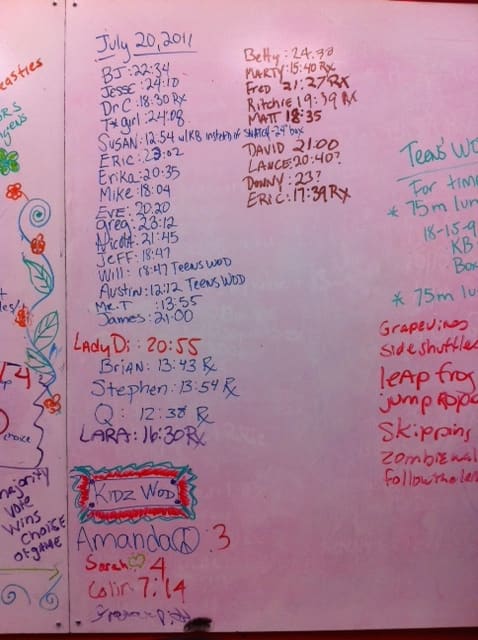 July 20, 2011
BJ: 22:34
Jesse: 24:10
Dr C: 18:30 Rx
Txgirl: 24:08
Susan: 12:54 w/KB instead of 24" box
Eric: 23:02
Erika: 20:35
Mike: 18:04
Eve: 20:20
Greg: 23:12
Nicole: 21:45
Jeff: 18:47
Will: 18:47 Teens WOD
Austin: 12:12 Teens WOD
Mr. T: 13:55
James: 21:00
Lady Di: 20:55
Brian: 13:43 Rx
Stephen: 13:54 Rx
Q: 12:38 Rx
LARA: 16:30 Rx
Kidz WOD
Amanda: 3
Sarah 4
Colin 7:14
Betty: 24:30
Marty: 15:40 Rx
Fred 21:27 RX
Ritchie 19:39 RX
Matt 18:35
David 21:00
Lance: 20:40?
Danny: 23?
Eric: 17:39 Rx
Teens' WO
For time
* 75m lun
18-15-9
KB
Box
* 75m lu
Grapevines
side shuffle
leap frog
jump rope
Skipping
zombie wal
follow the le
easties
choice
majority
vote
wins
choice
of game